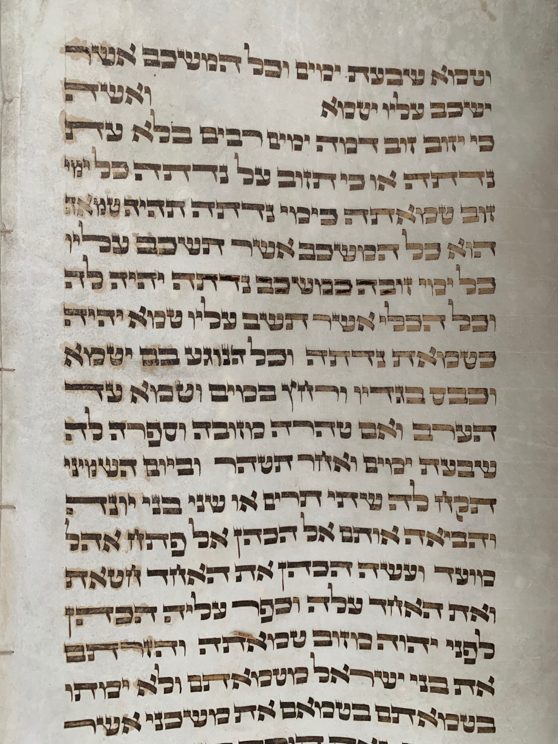 וטמא שבעת ימים וכל המשכב אשר
ישכב עליו יטמא ואשה
כי יזוב זוב דמה ימים רבים בלא עת
נדתה או כי תזוב על נדתה כל ימי
זוב טמאתה כימי נדתה תהיה טמאה
הוא כל המשכב אשר תשכב עליו
כל ימי זובה כמשכב נדתה יהיה לה
וכל הכלי אשר תשב עליו טמא יהיה
כטמאת נדתה וכל הנוגע בם יטמא
וכבס בגדיו ורחץ במים וטמא עד
הערב ואם טהרה מזובה וספרה לה
שבעת ימים ואחר תטהר וביום השמיני
תקח לה שתי תרים או שני בני יונה
והביאה אותם אל הכהן אל פתח אהל
מועד ועשה הכהן את האחד חטאת
ואת האחד עלה וכפר עליה הכהן
לפני יהוה מזוב טמאתה והזרתם
את בני ישראל מטמאתם ולא ימתו
בטמאתם בטמאם את משכני אשר